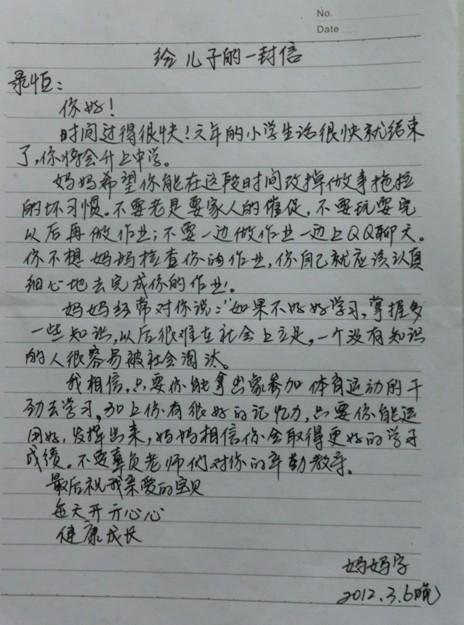 No.
Date
给儿子的一封信
你好!
时间过得很快!六年的小学生活很快就结束
了,你将会升上中学。
妈妈希望你能在这段时间改掉做事拖拉
的坏习惯。不要老是要家人的催促,不要玩耍完
以后再做作业;不要一边做作业一边上QQ聊天。
你不想妈妈检查你的作业,你自己就应该认真
细心地去完成你的作业!
妈妈经常对你说:“如果不好好学习,掌握多
一些知识,以后很难在社会上立足,一个没有知识
的人很容易被社会淘汰。
我相信,只要你能拿出象参加体育运动的干
劲去学习,加上你有很好的记忆力,只要你能运
用好,发挥出来,妈妈相信你会取得更好的学习
成绩。不要辜负老师们对你的辛勤教导。
最后祝我亲爱的宝贝
每天开开心心
健康成长
妈妈字
2012.3.6晚